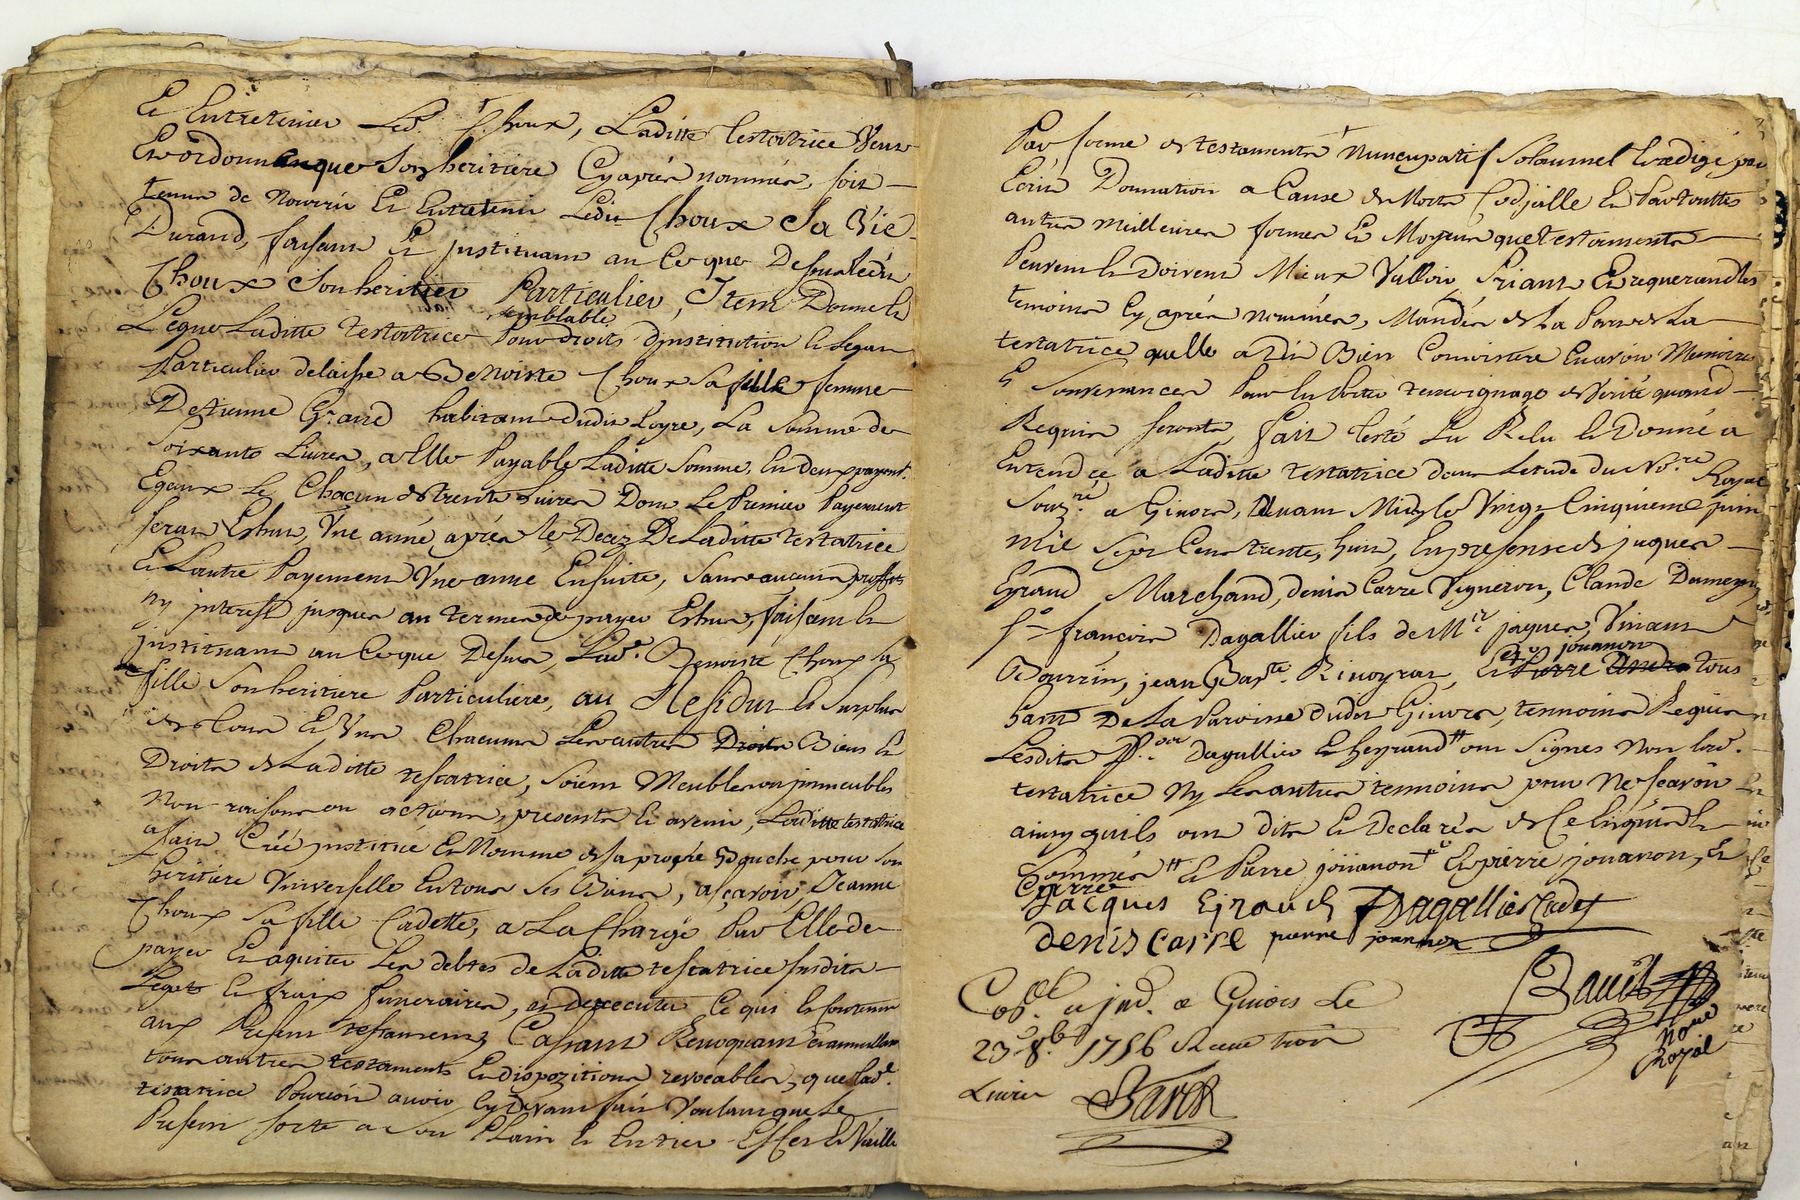 Et Entretenir Led. Choux, Laditte testatrice Veut
Et ordonne que son heritiere Cy après nommée, soit
tenue de Nourrir Et Entretenir Ledit Choux Sa Vie
Durand, faisant Et jnstituant au Ce que Dessus ledit
Choux Son heritier Particulier, Jtem Donne Et
semblable
Legue Laditte testatrice Pour droits djnstitution Et legat
Particulier delaisse a Benoiste Choux sa fille femme
Destienne Girard habitant dudit Loyre, La Somme de
Soixante Livres, a Elle Payable Laditte Somme En deux payent.
Egaux Et Chacun de trente Livres Dont Le Premier Payement
sera Eshu, Vne année après le Decez De Laditte testatrice
Et Lautre Payement Vne anne Ensuite, Sans aucuns proffits
ny jnterest jusques au termes de payer Eshus, faisant Et
jnstituant au Ce que Dessus, Lad. Benoiste Choux sa
fille Son heritiere Particuliere, au Residut Et Surplus
de tous Et Vns Chacuns Les autres Droits Biens Et
Droits de Laditte testatrice, Soient Meubles ou jmmeubles
Noms raisons ou actions, presents Et avenir, Laditte testatrice
a fait Créé jnstitué Et Nommé de sa propre Bouche pour son
heritiere Vniverselle En tous Ses Biens, a sçavoir, Jeanne
Choux sa fille Cadette, a La Charge Par Elle de
payer Et aquiter Les debtes de Laditte testatrice susdits
Legats Et fraix funeraires, et dexecuter Ce qui Est Contenu
aux Present testament, Cassant Revoquant Et annullant
tous autres testaments Et dispozitions revocables, que lad.
testatrice Pourroit avoir Cy Devant fait Voulant que Le
Present sorte a son Plain Et Entier Effet Et Vaille
Par forme de testaments Nuncupatif Solannel Redigé par
Ecrit Donnation a Cause de Mort Codjcille Et Par touttes
autres meilleures formes Et Moyens que testaments
Peuvent Et doivent Mieux Valloir, Priant Et requerand les
temoins Cy après nommés, Mandés de La Part de La
testatrice quelle a dit Bien Connoistre En avoir Memoire
Et Souvenances Pour En Porter temoignage de Verité quand
Requis seronts, fait Leté Lu Relu Et Donné a
Entendre a Laditte testatrice dans Letude du No.re Royal
Souz.né a Givors, avant Midy le Vingt Cinquieme juin
mil Sept Cents trente huit, En presense de jacques
Eyraud Marchand, denis Carre Vigneron, Claude Dumerny
S.r francois Dagallier fils de M.re jacques, Vincent
jouanon
Bourrin, jean Bap.te Rivoyrat, Et Pierre tous
habit. De La Paroisse dudit Givors, temoins Requis
Lesdits Dagallier Et heyraud ont Signes Non lad.
testatrice Ny Les autres temoins pour Ne sçavoir
ainsy quils ont dits Et Declarés de Ce Enquis Et
Sommés Et Pierre joüanon Et pierre jouanon, Et
Carre
Jacques Eyraud Dagallier Cadet
denis carre pierre jouanon
Con.lé et jns. a Givors Le
23 8.b 1756 Receu trois
Livres
no.re
Royal